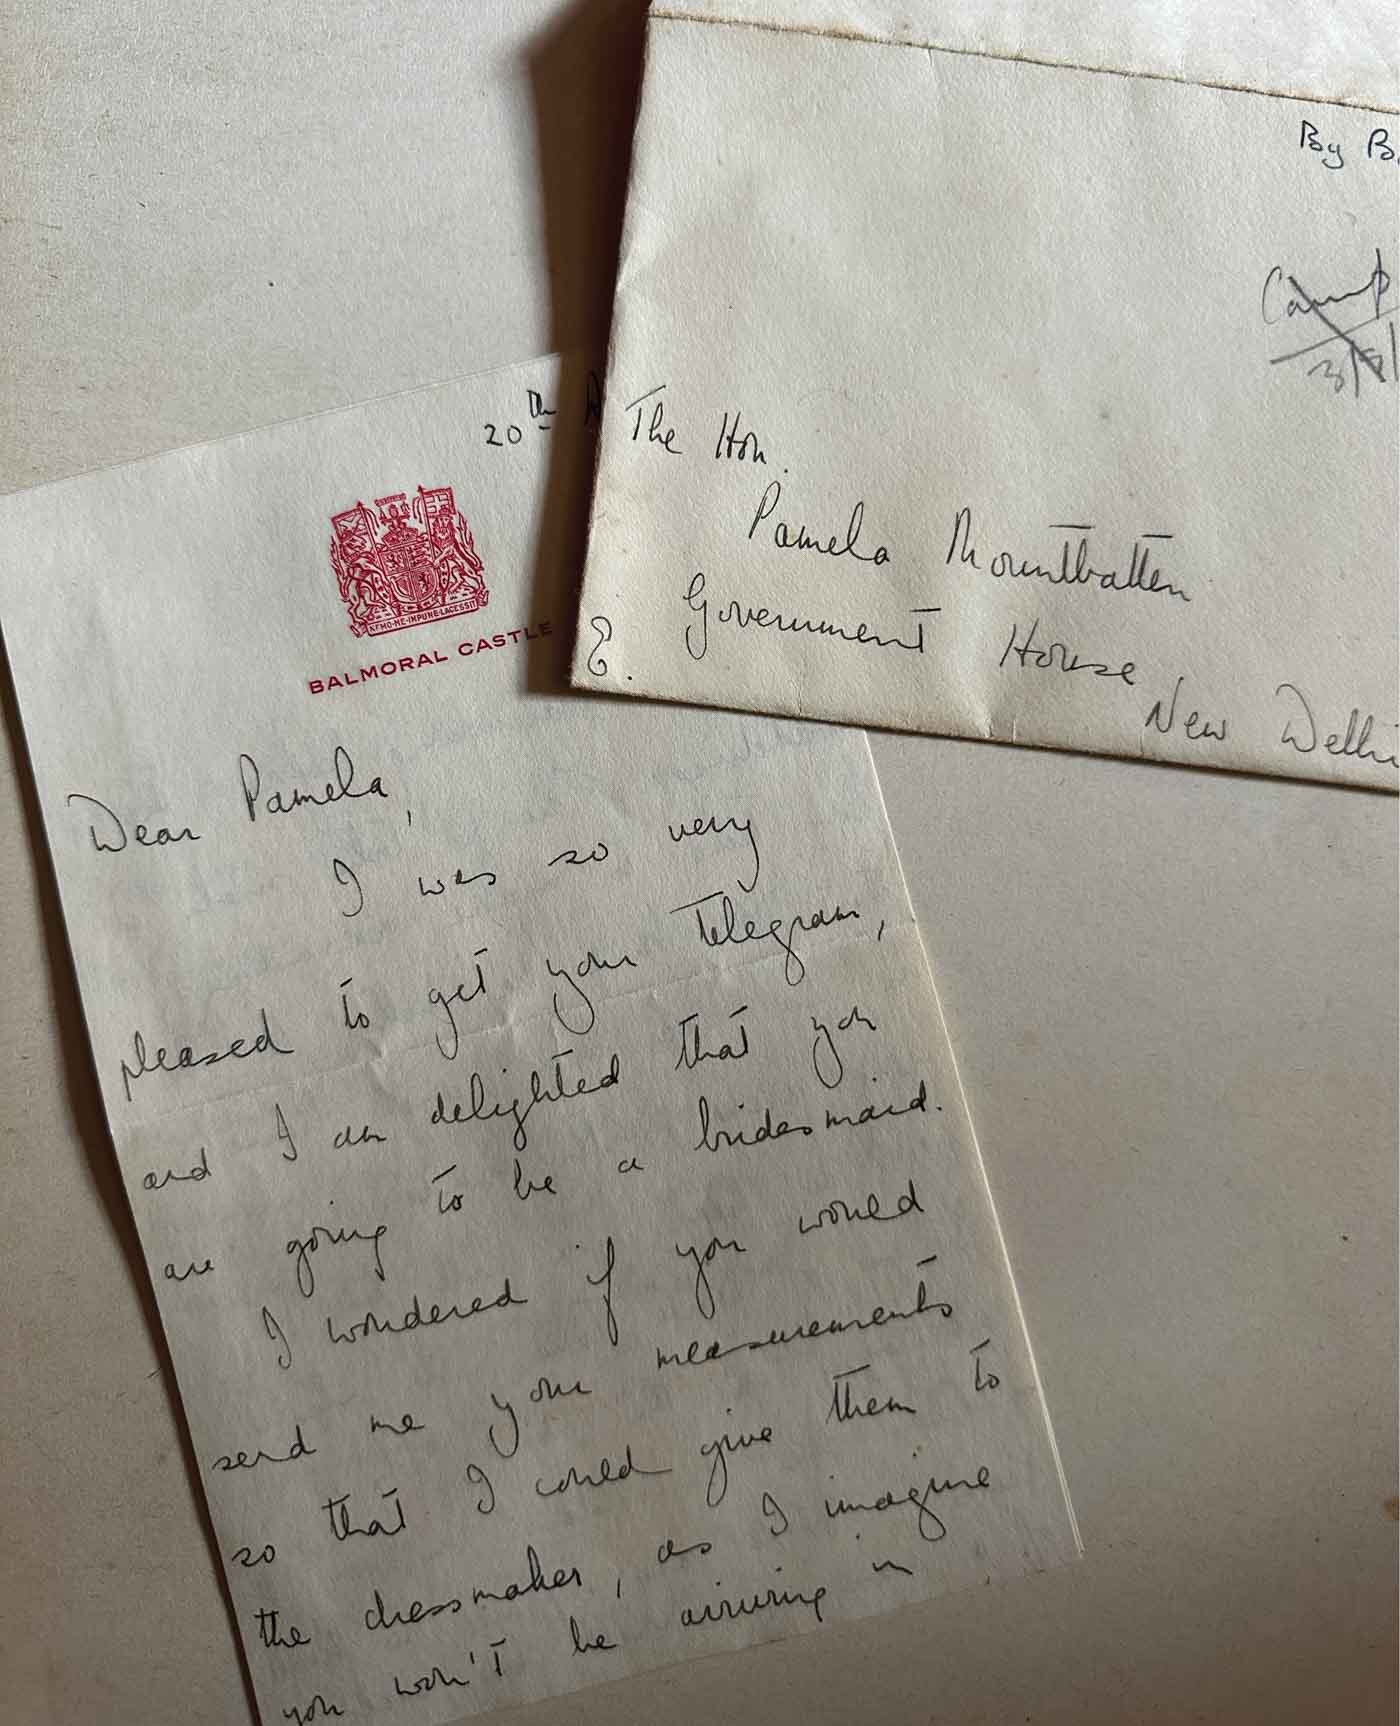 By B
Camp
The Hon.
Pamela Mountbatten
Government House
New Delhi
E.
20th A
NEMO·ME·IMPUNE·LACESSIT
BALMORAL CASTLE
Dear Pamela,
I was so very
pleased to get your telegram,
and I am delighted that you
are going to be a bridesmaid.
I wondered if you would
send me your measurements
so that I could give them to
the dressmaker, as I imagine
you won't be arriving in